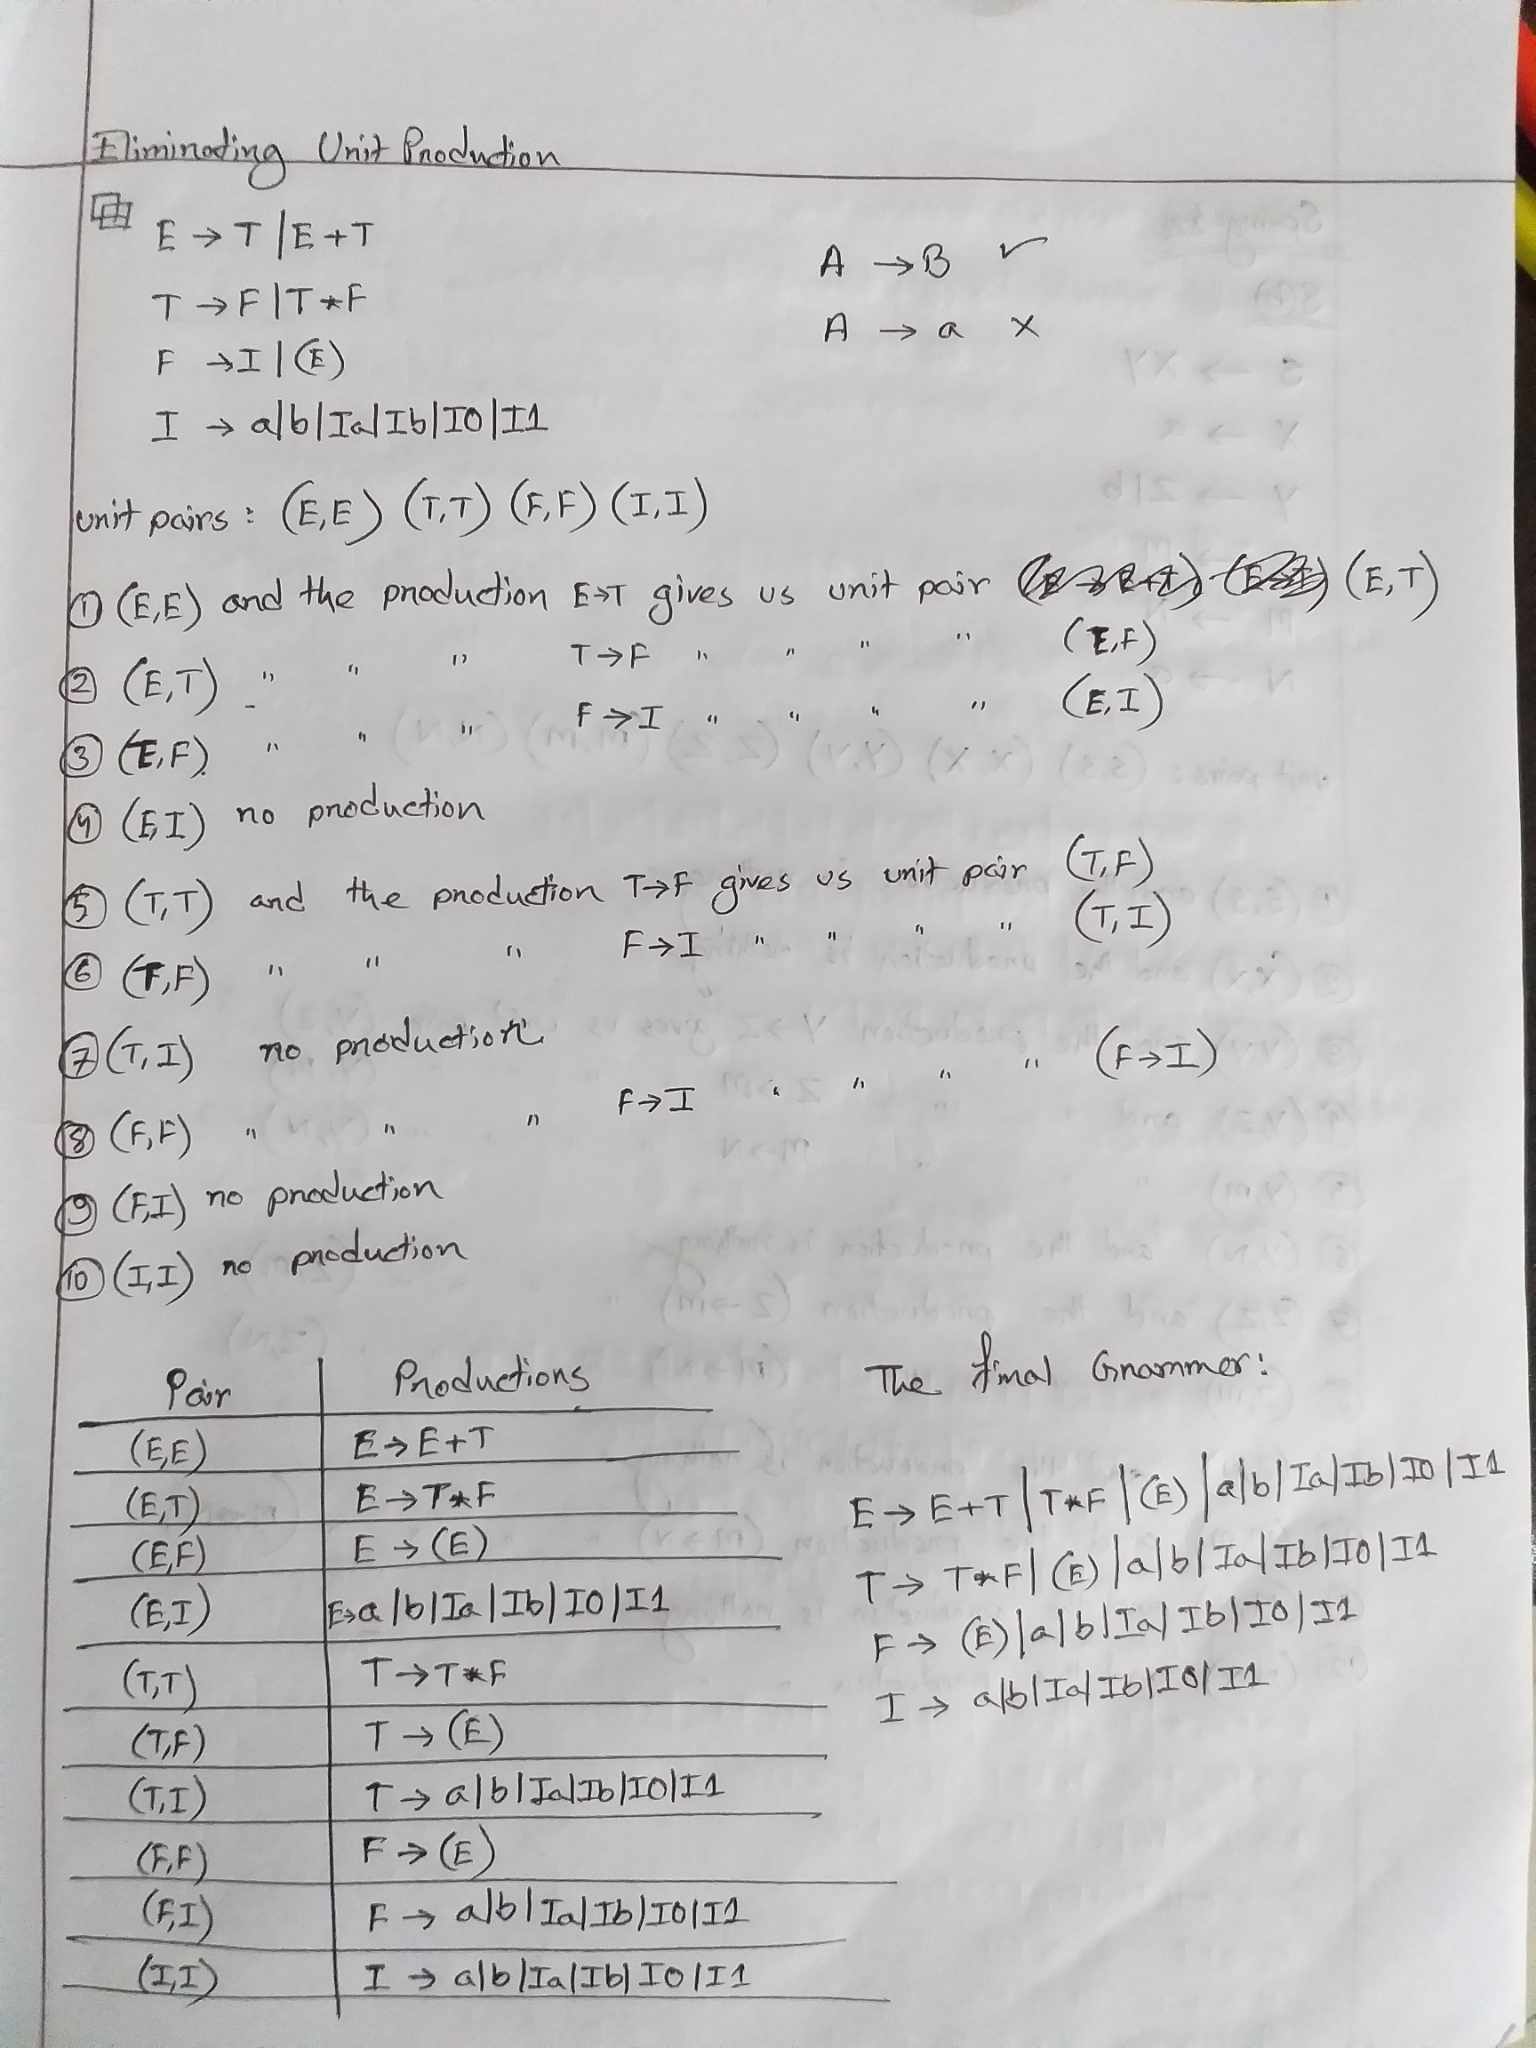 Eliminating Unit Production
E → T | E + T
A → B ✓
T → F | T * F
A → a ×
F → I | (E)
I → a|b|Ia|Ib|I0|I1
unit pairs : (E,E) (T,T) (F,F) (I,I)
① (E,E) and the production E→T gives us unit pair (E,T)
② (E,T) " " " T→F " " " " (E,F)
③ (E,F) " " " F→I " " " " (E,I)
④ (E,I) no production
⑤ (T,T) and the production T→F gives us unit pair (T,F)
⑥ (T,F) " " " F→I " " " " (T,I)
⑦ (T,I) no production
⑧ (F,F) " " " F→I " " " " (F→I)
⑨ (F,I) no production
⑩ (I,I) no production
Pair Productions
(E,E) E → E+T
(E,T) E → T*F
(E,F) E → (E)
(E,I) E→a|b|Ia|Ib|I0|I1
(T,T) T → T*F
(T,F) T → (E)
(T,I) T → a|b|Ia|Ib|I0|I1
(F,F) F → (E)
(F,I) F → a|b|Ia|Ib|I0|I1
(I,I) I → a|b|Ia|Ib|I0|I1
The final Grammer:
E → E+T | T*F | (E) | a|b|Ia|Ib|I0|I1
T → T*F | (E) | a|b|Ia|Ib|I0|I1
F → (E)|a|b|Ia|Ib|I0|I1
I → a|b|Ia|Ib|I0|I1